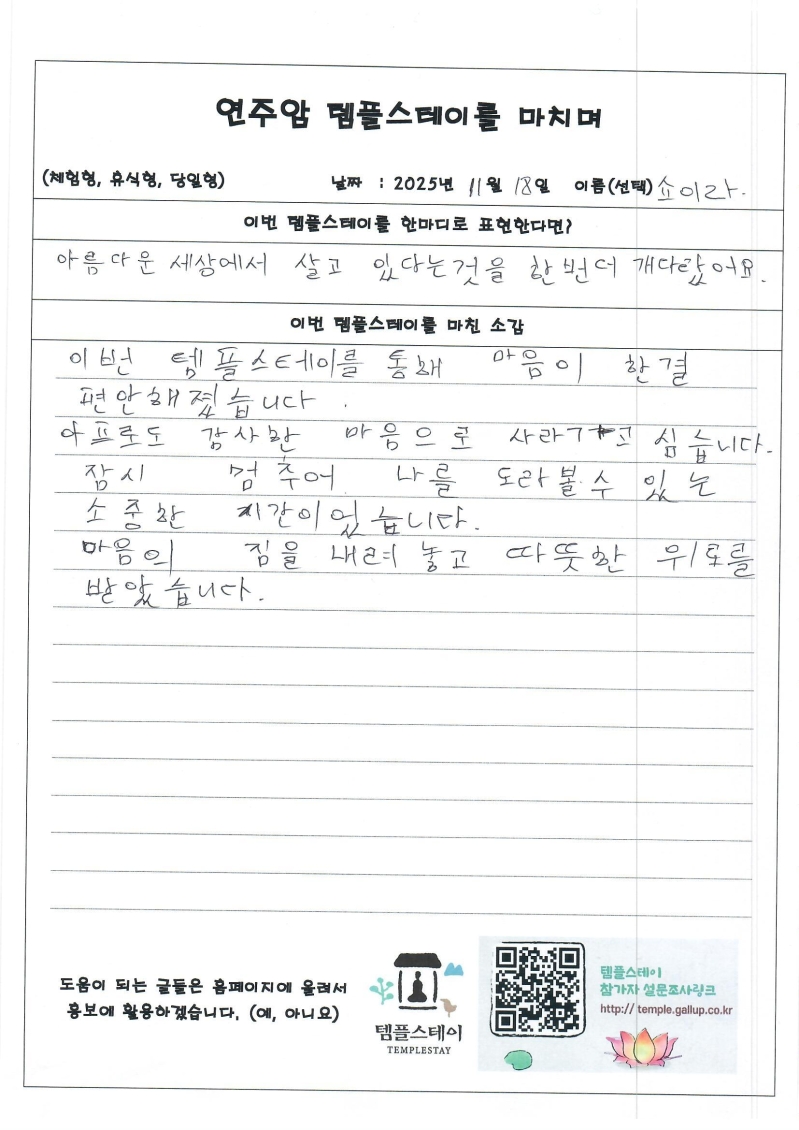 연주암 템플스테이를 마치며
(체험형, 휴식형, 당일형) 날짜 : 2025년 11월 18일 이름(선택) 쇼이라.
이번 템플스테이를 한마디로 표현한다면?
아름다운 세상에서 살고 있다는것을 한번더 개다랐어요.
이번 템플스테이를 마친 소감
이번 템플스테이를 통해 마음이 한결
편안해졌습니다.
아프로도 감사한 마음으로 사라가고 심습니다.
잠시 멈추어 나를 도라볼수 있는
소중한 시간이었습니다.
마음의 짐을 내려놓고 따뜻한 위로를
받았습니다.
도움이 되는 글들은 홈페이지에 올려서
홍보에 활용하겠습니다. (예, 아니요)
템플스테이
TEMPLESTAY
템플스테이
참가자 설문조사링크
http:// temple.gallup.co.kr